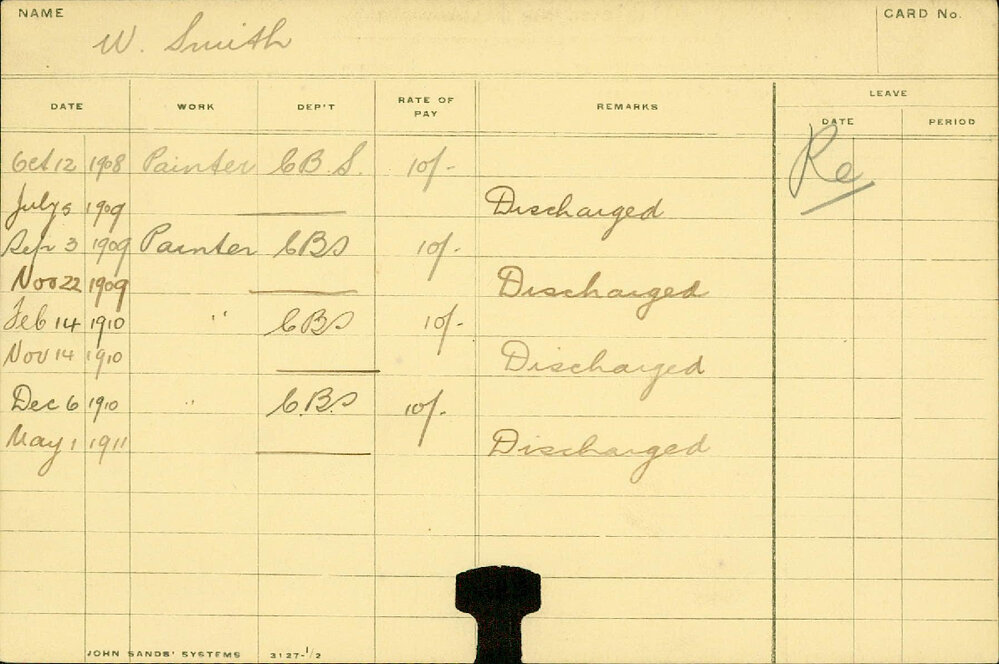 NAME
W. Smith
CARD No.
DATE WORK DEP'T RATE OF PAY REMARKS LEAVE
DATE PERIOD
Oct 12 1908 Painter C.B.S. 10/- Re
July 5 1909 Discharged
Sep 3 1909 Painter CBS 10/-
Nov 22 1909 Discharged
Feb 14 1910 " CBS 10/-
Nov 14 1910 Discharged
Dec 6 1910 " C.B.S 10/-
May 1 1911 Discharged
JOHN SANDS' SYSTEMS 3127-1/2